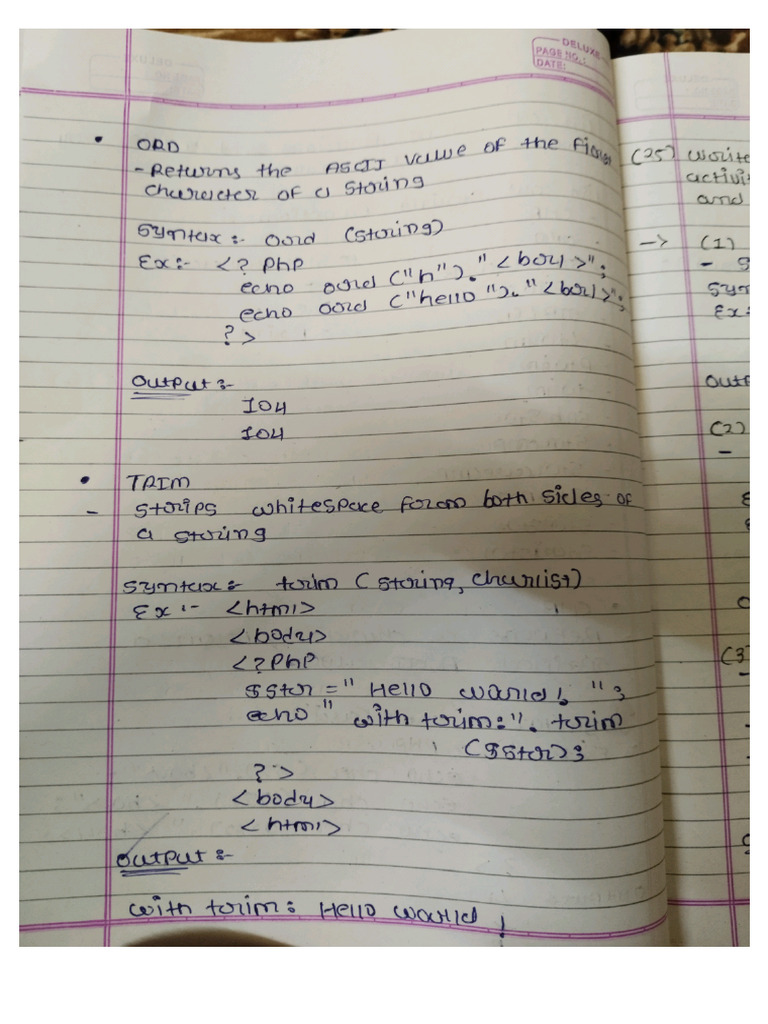 DELUXE
PAGE NO.:
DATE:
• ORD
- Returns the ASCII value of the First
character of a string
Syntax:- ord (string)
Ex:- <? PHP
echo ord ("h")."<br/>";
echo ord ("hello")."<br/>";
?>
Output:-
104
104
• TRIM
- strips whitespace from both sides of
a string
Syntax:- trim (string, charlist)
Ex:- <html>
<body>
<?PHP
$str = " Hello world! ";
echo " with trim:". trim
($str);
?>
<body>
<html>
Output:-
with trim: Hello world!
(25) write
activit
and
-> (1)
- S
Syn
Ex:
Outp
(2)
-
(3